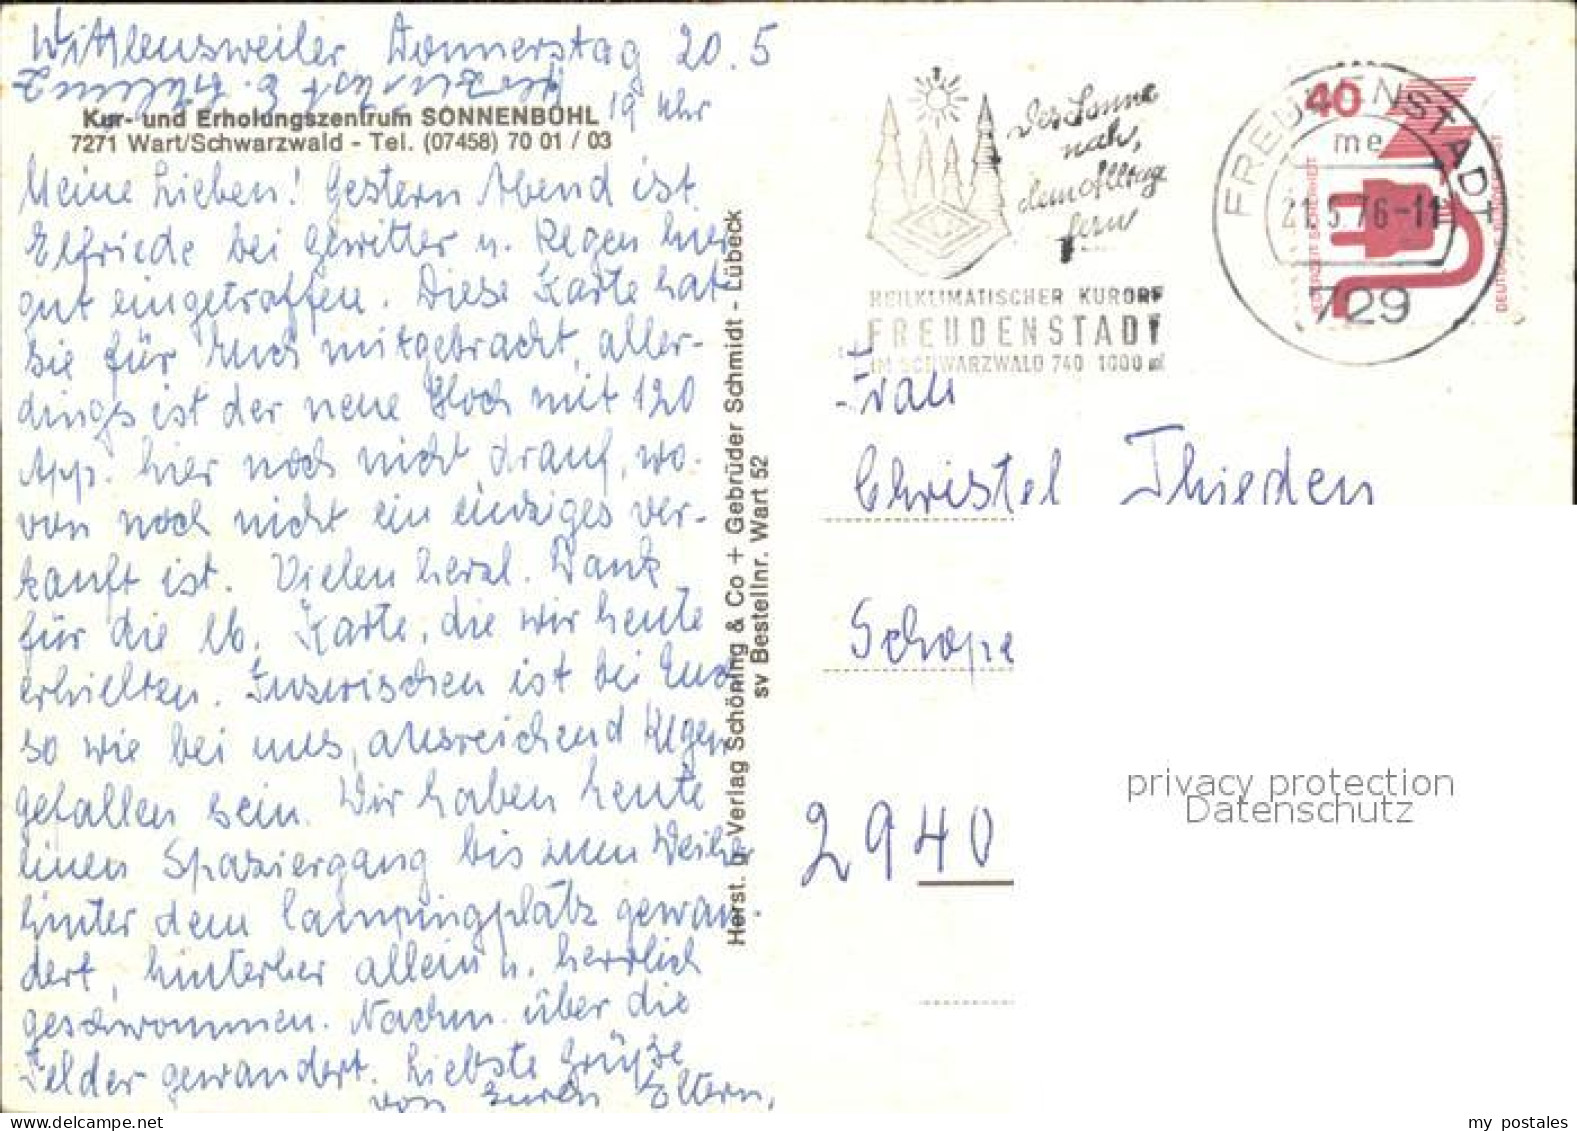 Wittlensweiler Donnerstag 20.5
19 Uhr
Kur- und Erholungszentrum SONNENBÜHL
7271 Wart/Schwarzwald - Tel. (07458) 70 01 / 03
Meine Lieben! Gestern Abend ist
Elfriede bei Gewitter u. Regen hier
gut eingetroffen. Diese Karte hat
sie für Euch mitgebracht, aller-
dings ist der neue Block mit 120
App. hier noch nicht drauf, wo-
von noch nicht ein einziges ver-
kauft ist. Vielen herzl. Dank
für die lb. Karte, die wir heute
erhielten. Inzwischen ist bei Euch
so wie bei uns, ausreichend Regen
gefallen sein. Wir haben heute
einen Spaziergang bis zum Weiher
hinter dem Campingplatz gewan-
dert, hinterher allein u. herrlich
geschwommen. Nachm. über die
Felder gewandert. Liebste Grüße
von Euren Eltern,
Herst. u. Verlag Schöning & Co + Gebrüder Schmidt - Lübeck
sv Bestellnr. Wart 52
Der Sonne
nah,
dem Alltag
fern
HEILKLIMATISCHER KURORT
FREUDENSTADT
IM SCHWARZWALD 740 1000 m
FREUDENSTADT
me
21.5.76-11
729
40
JEDERZEIT SICHERHEIT
DEUTSCHE BUNDESPOST
Frau
Christel Thieden
Schope
2940
privacy protection
Datenschutz
my postales